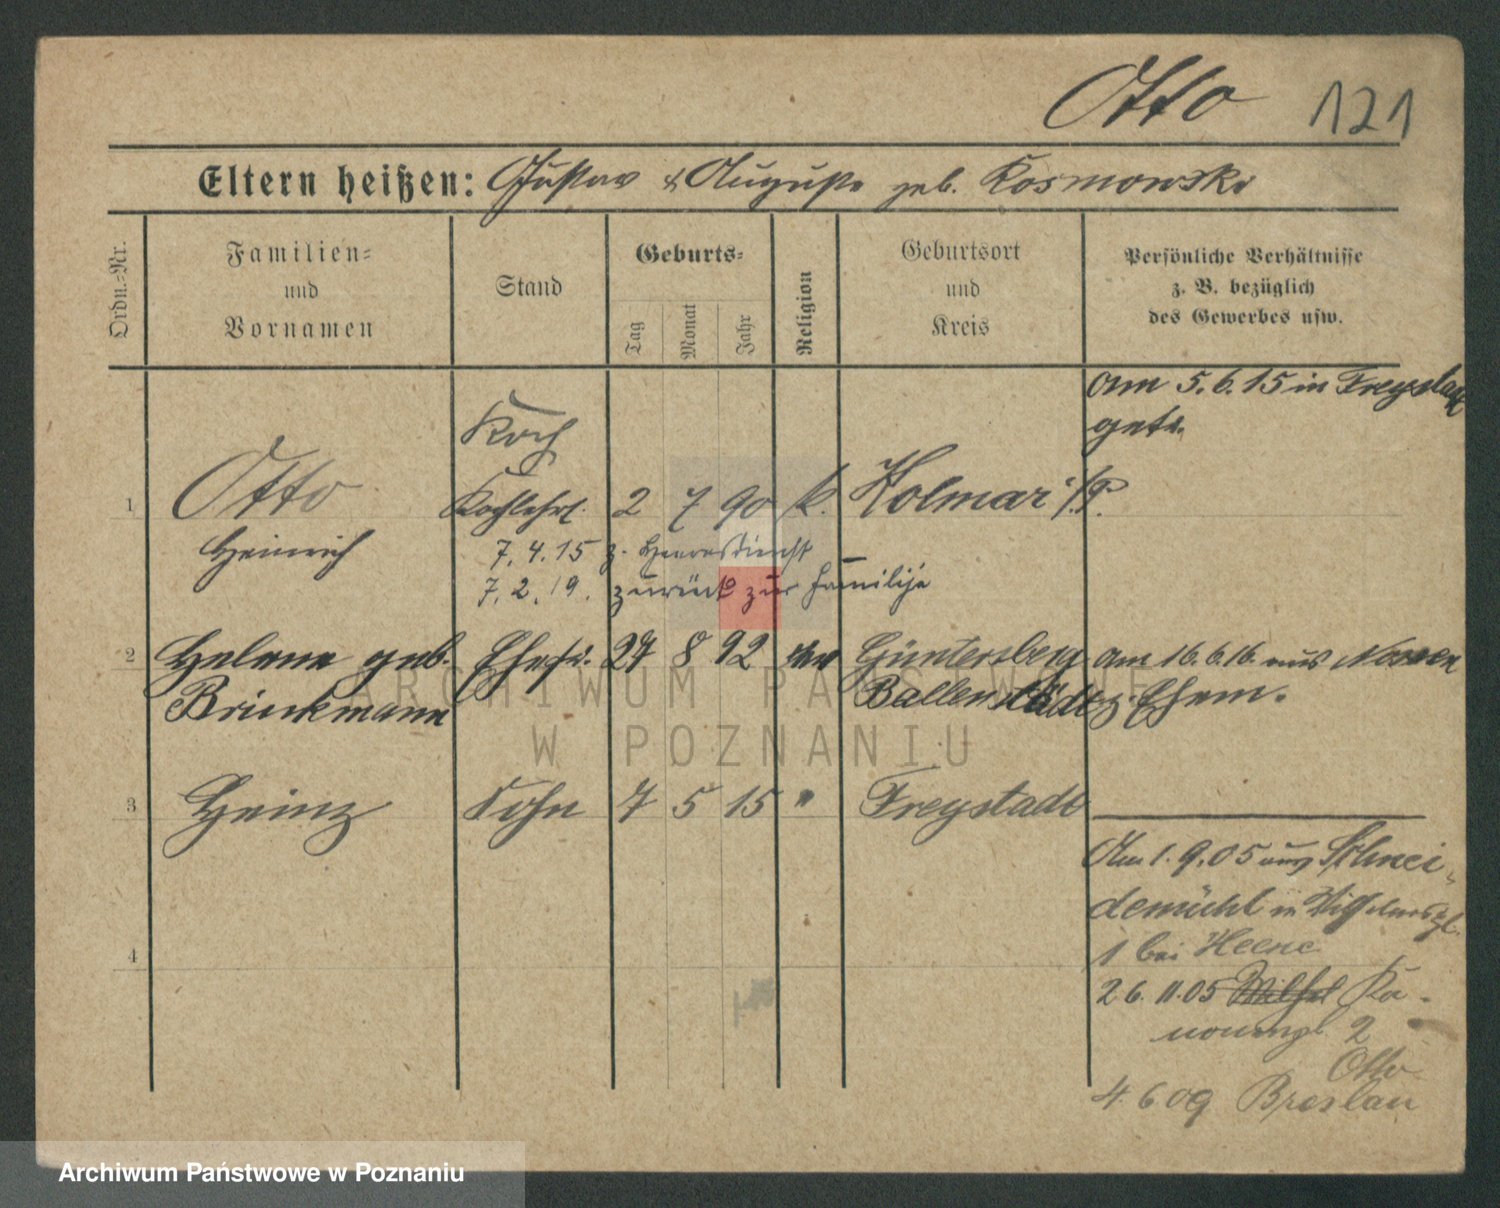 Otto 121
Eltern heißen: Gustav & Auguste geb. Kosmowski
Ordn.-Nr.
Familien-
und
Vornamen
Stand
Geburts-
Tag
Monat
Jahr
Religion
Geburtsort
und
Kreis
Persönliche Verhältnisse
z. B. bezüglich
des Gewerbes usw.
am 5.6.15 in Freystadt
getr.
Koch
1 Otto Kochlehrl. 2 7 90 k. Kolmar i/P.
Heinrich
7.4.15 z. Heeresdienst
7.2.19. zurück zur Familije
2 Helene geb. Ehefr. 27 8 92 ev Güntersberg am 16.6.16. aus
Brinkmann Ballenstädt z. Ehem.
3 Heinz Sohn 7 5 15 " Freystadt
Am 1.9.05 aus Schnei-
demühl in Wilhelmspl.
1 bei Heene
4
26.11.05 Wilhel Ka-
nonenpl. 2
Otto
4.6.09 Breslau
ARCHIWUM PAŃSTWOWE
W POZNANIU
Archiwum Państwowe w Poznaniu